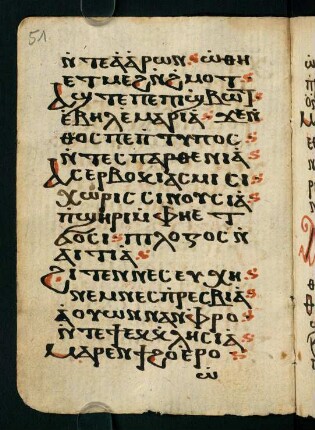 51
ⲛ̀ⲧⲉⲁ̀ⲁⲣⲱⲛ ⲱ̀ⲑⲏ
ⲉⲧⲙⲉϩⲛ̀ϩⲙⲟⲧ
ⲇⲩⲧⲉⲡⲉⲡⲓϣⲃⲱⲧ
ⲉⲃⲏⲗⲉⲙⲁⲣⲓⲁ ϫⲉⲛ̀
ⲑⲟⲥⲡⲉⲡⲧⲩⲡⲟⲥ
ⲛ̀ⲧⲉⲥⲡⲁⲣⲑⲉⲛⲓⲁ
ⲁⲥⲉⲣⲃⲟⲕⲓⲁⲥⲙⲓⲥⲓ
ⲭⲱⲣⲓⲥⲥⲓⲛⲟⲩⲥⲓⲁ
ⲡ̀ϣⲏⲣⲓⲙ̀ⲫⲏⲉⲧ
ϭⲟⲥⲓ ⲡⲓⲗⲟⲅⲟⲥⲛ̀
ⲁⲓⲧⲓⲁ
ϩⲓⲧⲉⲛⲛⲉⲥⲉⲩⲭⲏ
ⲛⲉⲙⲛⲉⲥⲡ̀ⲣⲉⲥⲃⲓⲁ
ⲁⲟⲩⲱⲛⲛⲁⲛⲫ̀ⲣⲟ
ⲛ̀ⲧⲉϯⲉⲕⲕⲗⲏⲥⲓⲁ
ⲙⲁⲣⲉⲛϯϩⲟⲉⲣⲟ
ⲱ̀